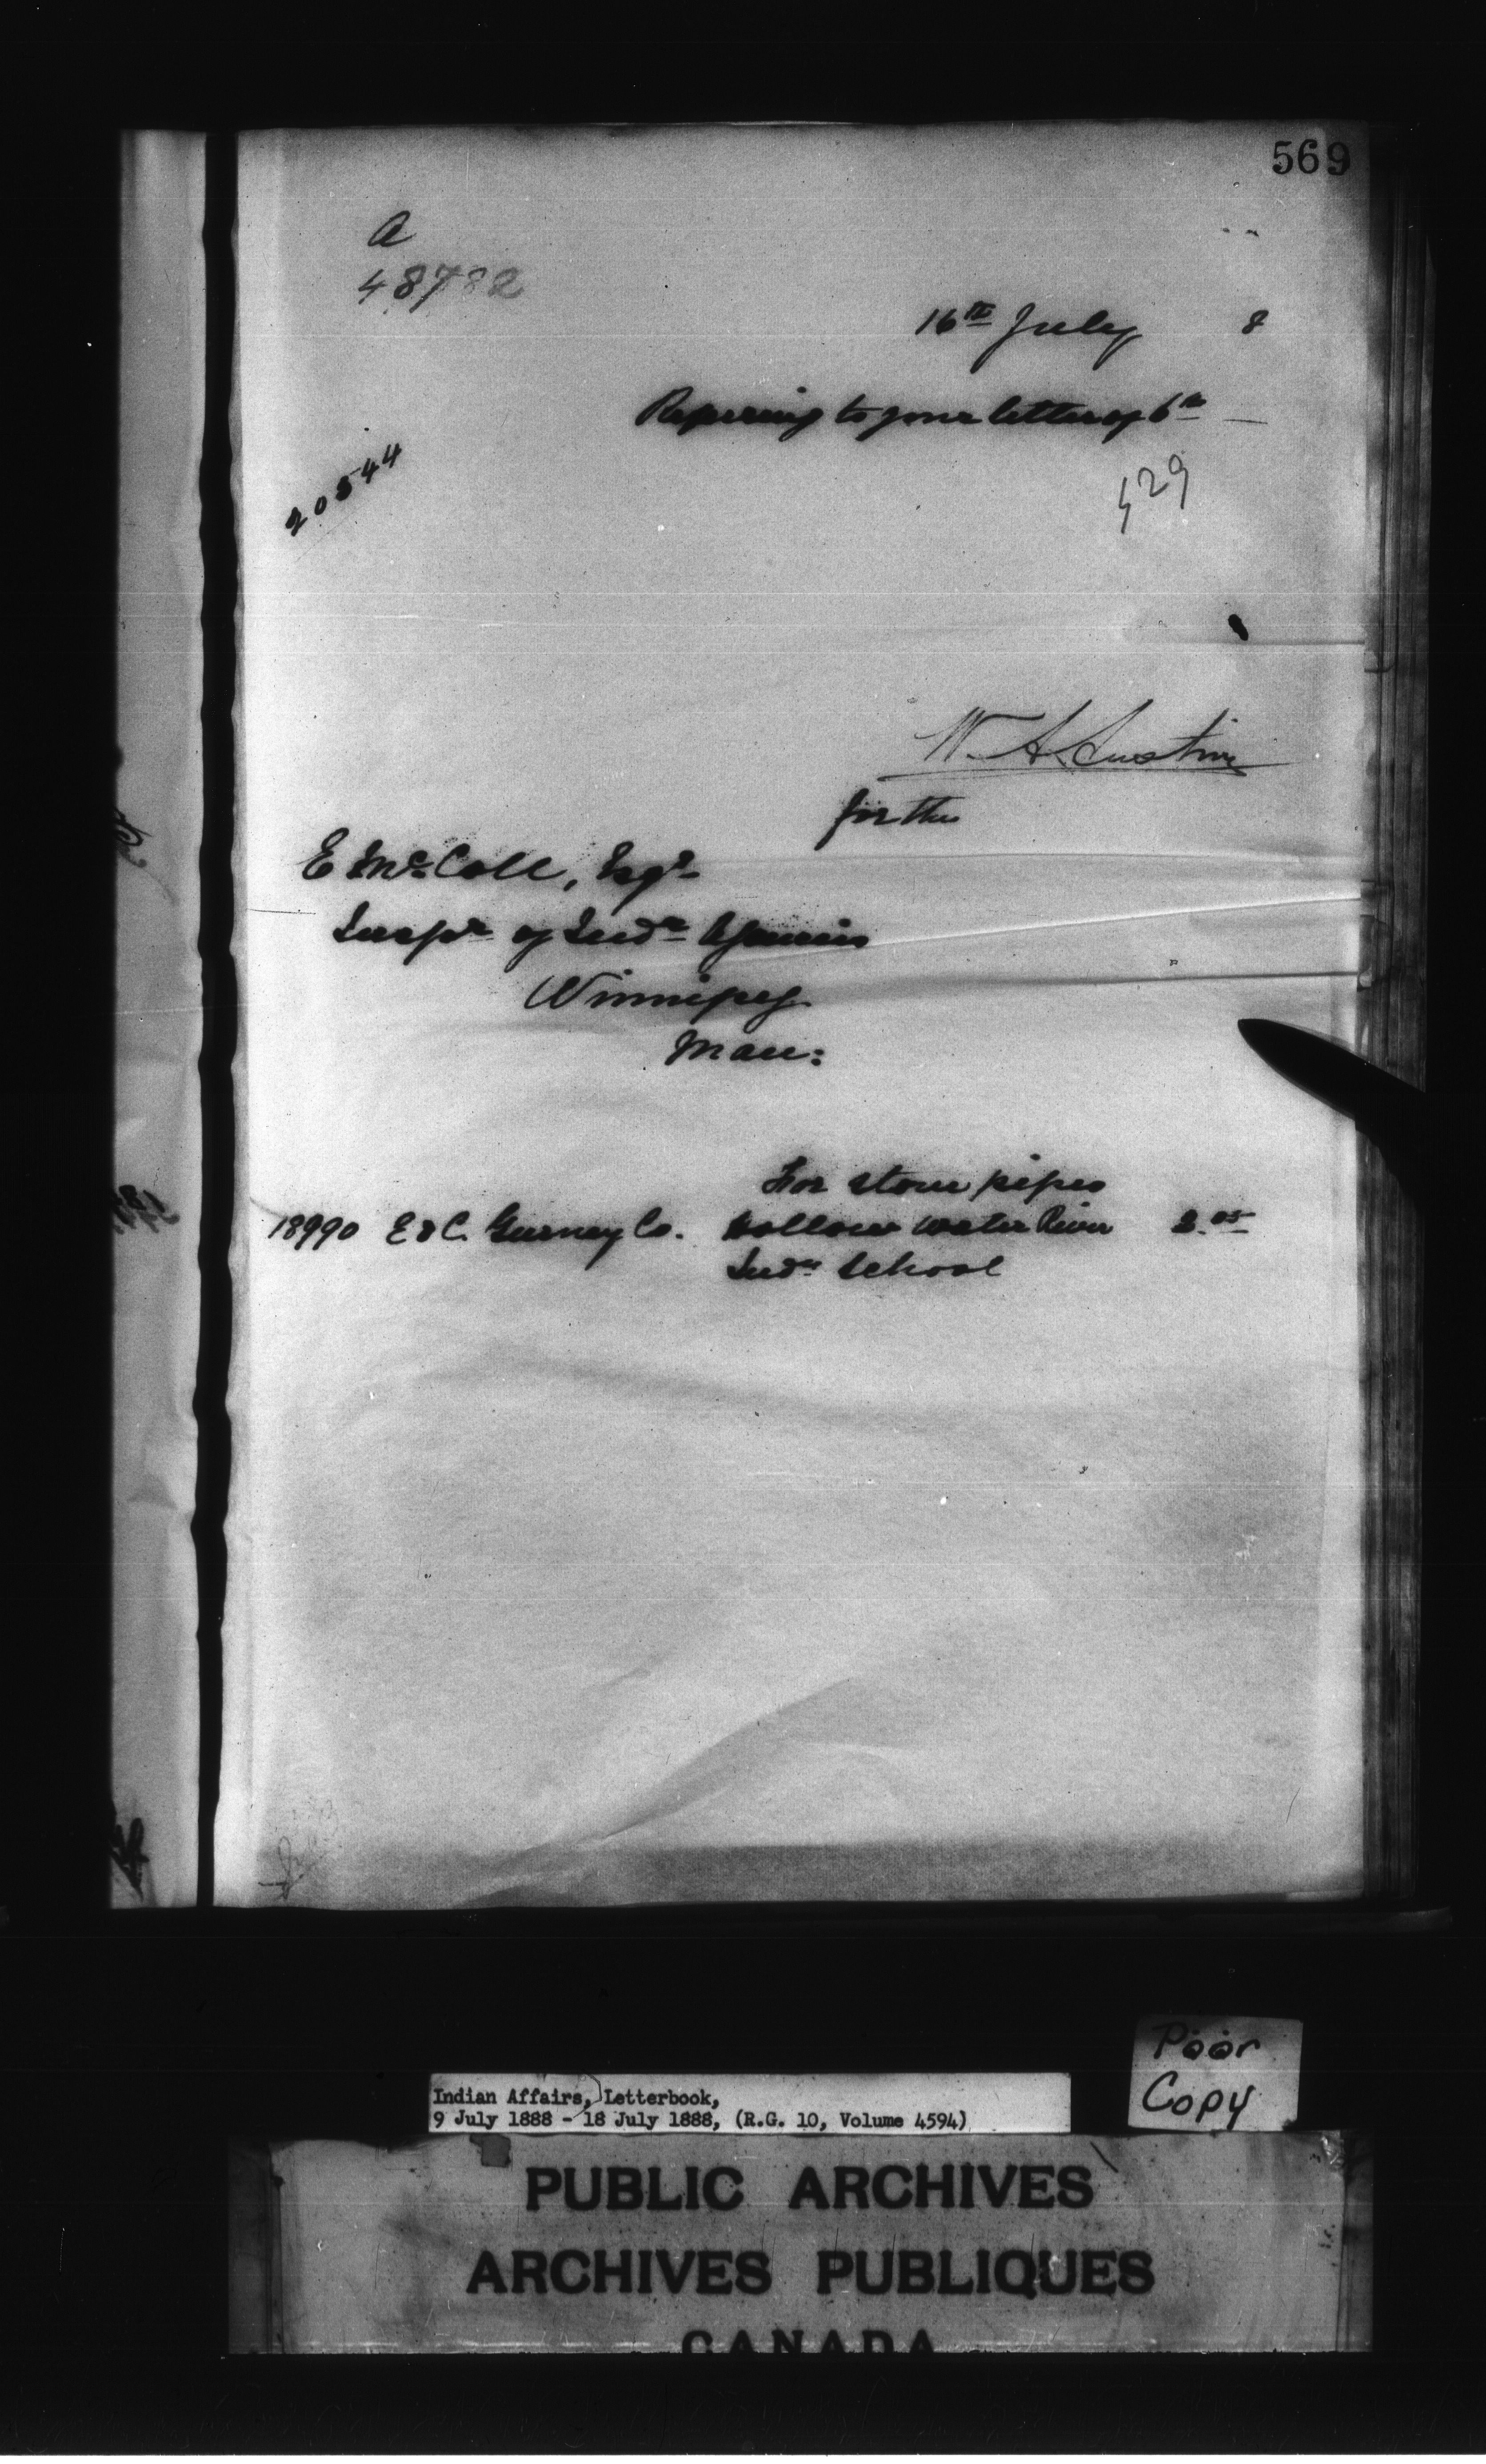 569
A
48782
16th July 8
Referring to your letter of 6th —
20544
529
W. A. Austin
for the
E McColl, Esqr
Inspr of Indn Agencies
Winnipeg
Man:
For stove pipes
18990 E & C. Gurney Co. Hollow Water River
Indn School
Poor
Copy
Indian Affairs, Letterbook,
9 July 1888 - 18 July 1888, (R.G. 10, Volume 4594)
PUBLIC ARCHIVES
ARCHIVES PUBLIQUES
CANADA